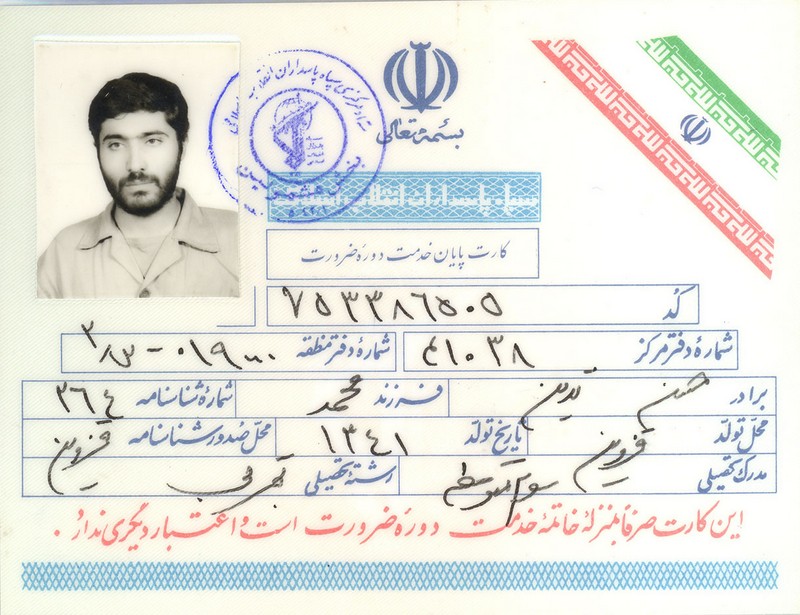 بسمه تعالی
ستاد مرکزی سپاه پاسداران انقلاب اسلامی
سپاه پاسداران انقلاب اسلامی
کارت پایان خدمت دورهٔ ضرورت
کُد ۷۵۳۳۸۶۵۰۵
شمارهٔ دفتر مرکز ۴۱۰۳۸ شمارهٔ دفتر منطقه
برادر حسن فرزند محمد شمارهٔ شناسنامه ۳۶۴
محل تولد قزوین تاریخ تولد ۱۳۴۱ محل صدور شناسنامه قزوین
مدرک تحصیلی سوم متوسطه رشتهٔ تحصیلی تجربی
این کارت صرفاً بمنزلهٔ خاتمهٔ خدمت دورهٔ ضرورت است و اعتبار دیگری ندارد.